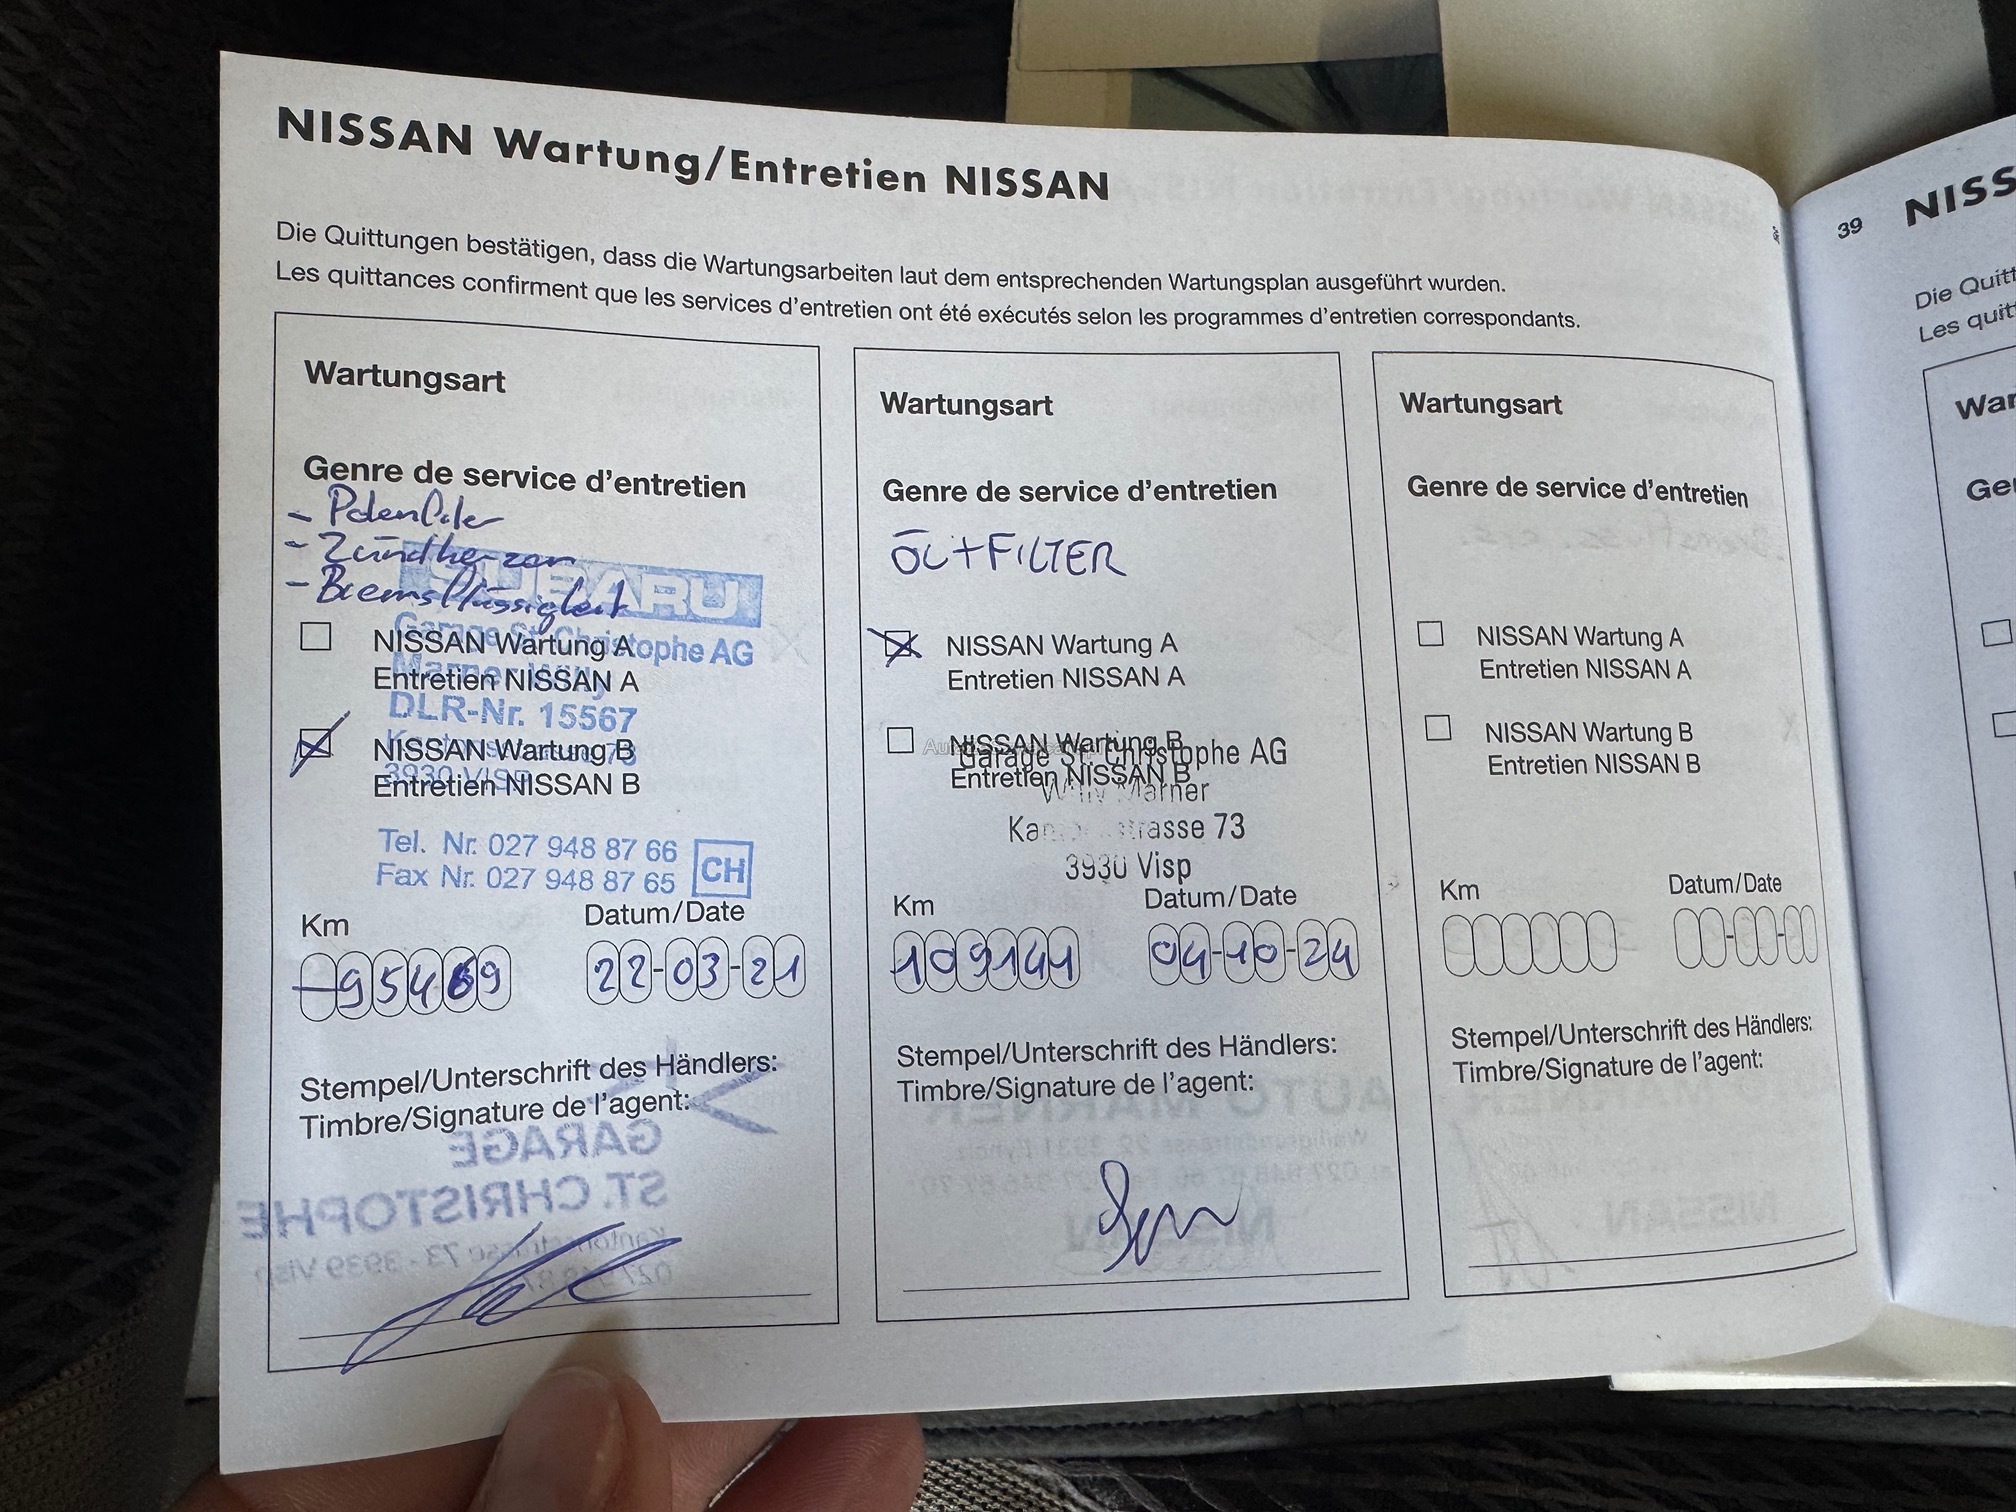 NISSAN Wartung/Entretien NISSAN
Die Quittungen bestätigen, dass die Wartungsarbeiten laut dem entsprechenden Wartungsplan ausgeführt wurden.
Les quittances confirment que les services d'entretien ont été exécutés selon les programmes d'entretien correspondants.
Wartungsart
Genre de service d'entretien
- Pollenfilter
- Zündkerzen
- Bremsflüssigkeit
SUBARU
Garage St. Christophe AG
NISSAN Wartung A
Marner Willy
Entretien NISSAN A
DLR-Nr. 15567
NISSAN Wartung B
3930 VISP
Entretien NISSAN B
Tel. Nr. 027 948 87 66
Fax Nr. 027 948 87 65
CH
Km
Datum/Date
-95469
22-03-21
Stempel/Unterschrift des Händlers:
Timbre/Signature de l'agent:
GARAGE
ST. CHRISTOPHE
Kantonsstrasse 73 - 3939 Visp
Wartungsart
Genre de service d'entretien
ÖL+FILTER
NISSAN Wartung A
Entretien NISSAN A
NISSAN Wartung B
Garage St. Christophe AG
Entretien NISSAN B
Willy Marner
Kantonsstrasse 73
3930 Visp
Km
Datum/Date
109141
04-10-24
Stempel/Unterschrift des Händlers:
Timbre/Signature de l'agent:
Wartungsart
Genre de service d'entretien
NISSAN Wartung A
Entretien NISSAN A
NISSAN Wartung B
Entretien NISSAN B
Km
Datum/Date
Stempel/Unterschrift des Händlers:
Timbre/Signature de l'agent:
39
NISS
Die Quitt
Les quit
War
Ge